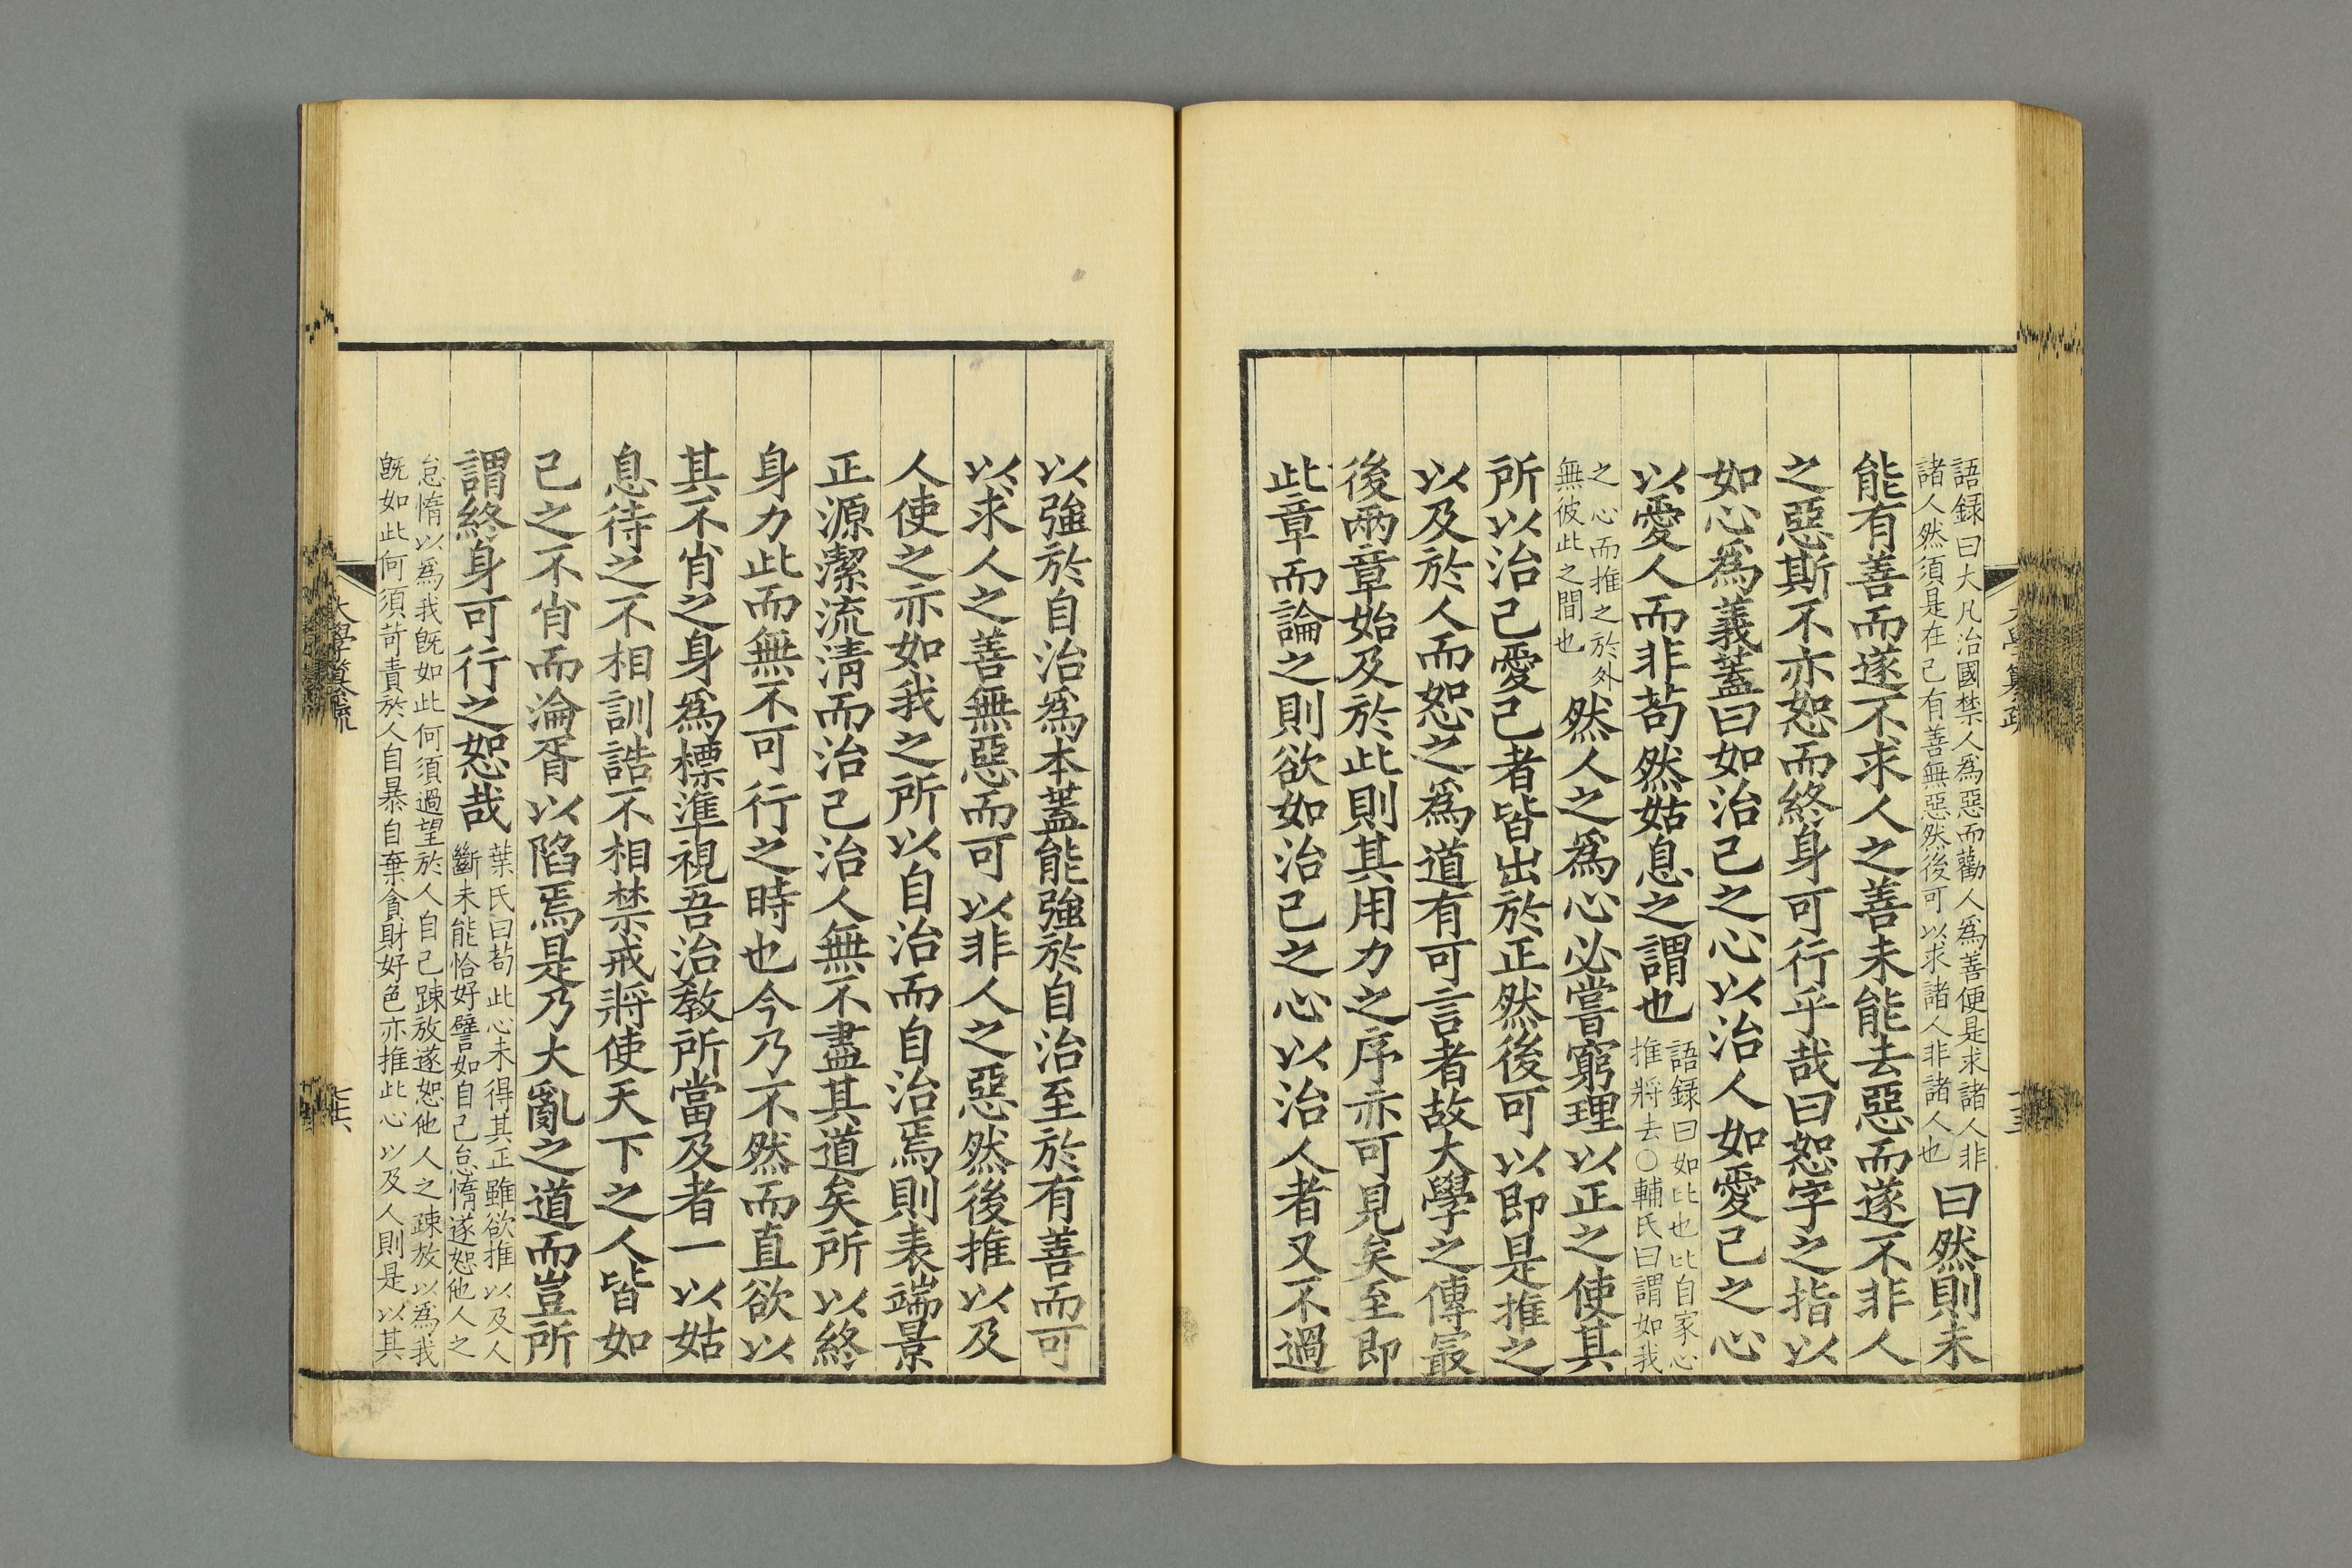 語録曰大凡治國禁人爲惡而勸人爲善便是求諸人非
諸人然須是在己有善無惡然後可以求諸人非諸人也
曰然則未
能有善而遂不求人之善未能去惡而遂不非人
之惡斯不亦恕而終身可行乎哉曰恕字之指以
如心爲義蓋曰如治己之心以治人如愛己之心
以愛人而非苟然姑息之謂也
語録曰如比也比自家心
推將去○輔氏曰謂如我
之心而推之於外
無彼此之間也
然人之爲心必嘗窮理以正之使其
所以治己愛己者皆出於正然後可以即是推之
以及於人而恕之爲道有可言者故大學之傳㝡
後兩章始及於此則其用力之序亦可見矣至即
此章而論之則欲如治己之心以治人者又不過
以強於自治爲本蓋能強於自治至於有善而可
以求人之善無惡而可以非人之惡然後推以及
人使之亦如我之所以自治而自治焉則表端景
正源潔流清而治己治人無不盡其道矣所以終
身力此而無不可行之時也今乃不然而直欲以
其不肖之身爲標準視吾治教所當及者一以姑
息待之不相訓誥不相禁戒將使天下之人皆如
己之不肖而淪胥以陷焉是乃大亂之道而豈所
謂終身可行之恕哉
葉氏曰苟此心未得其正雖欲推以及人
斷未能恰好譬如自己怠惰遂恕他人之
怠惰以爲我旣如此何須過望於人自己踈放遂恕他人之踈放以爲我
旣如此何須苛責於人自暴自棄貪財好色亦推此心以及人則是以其
大學纂疏